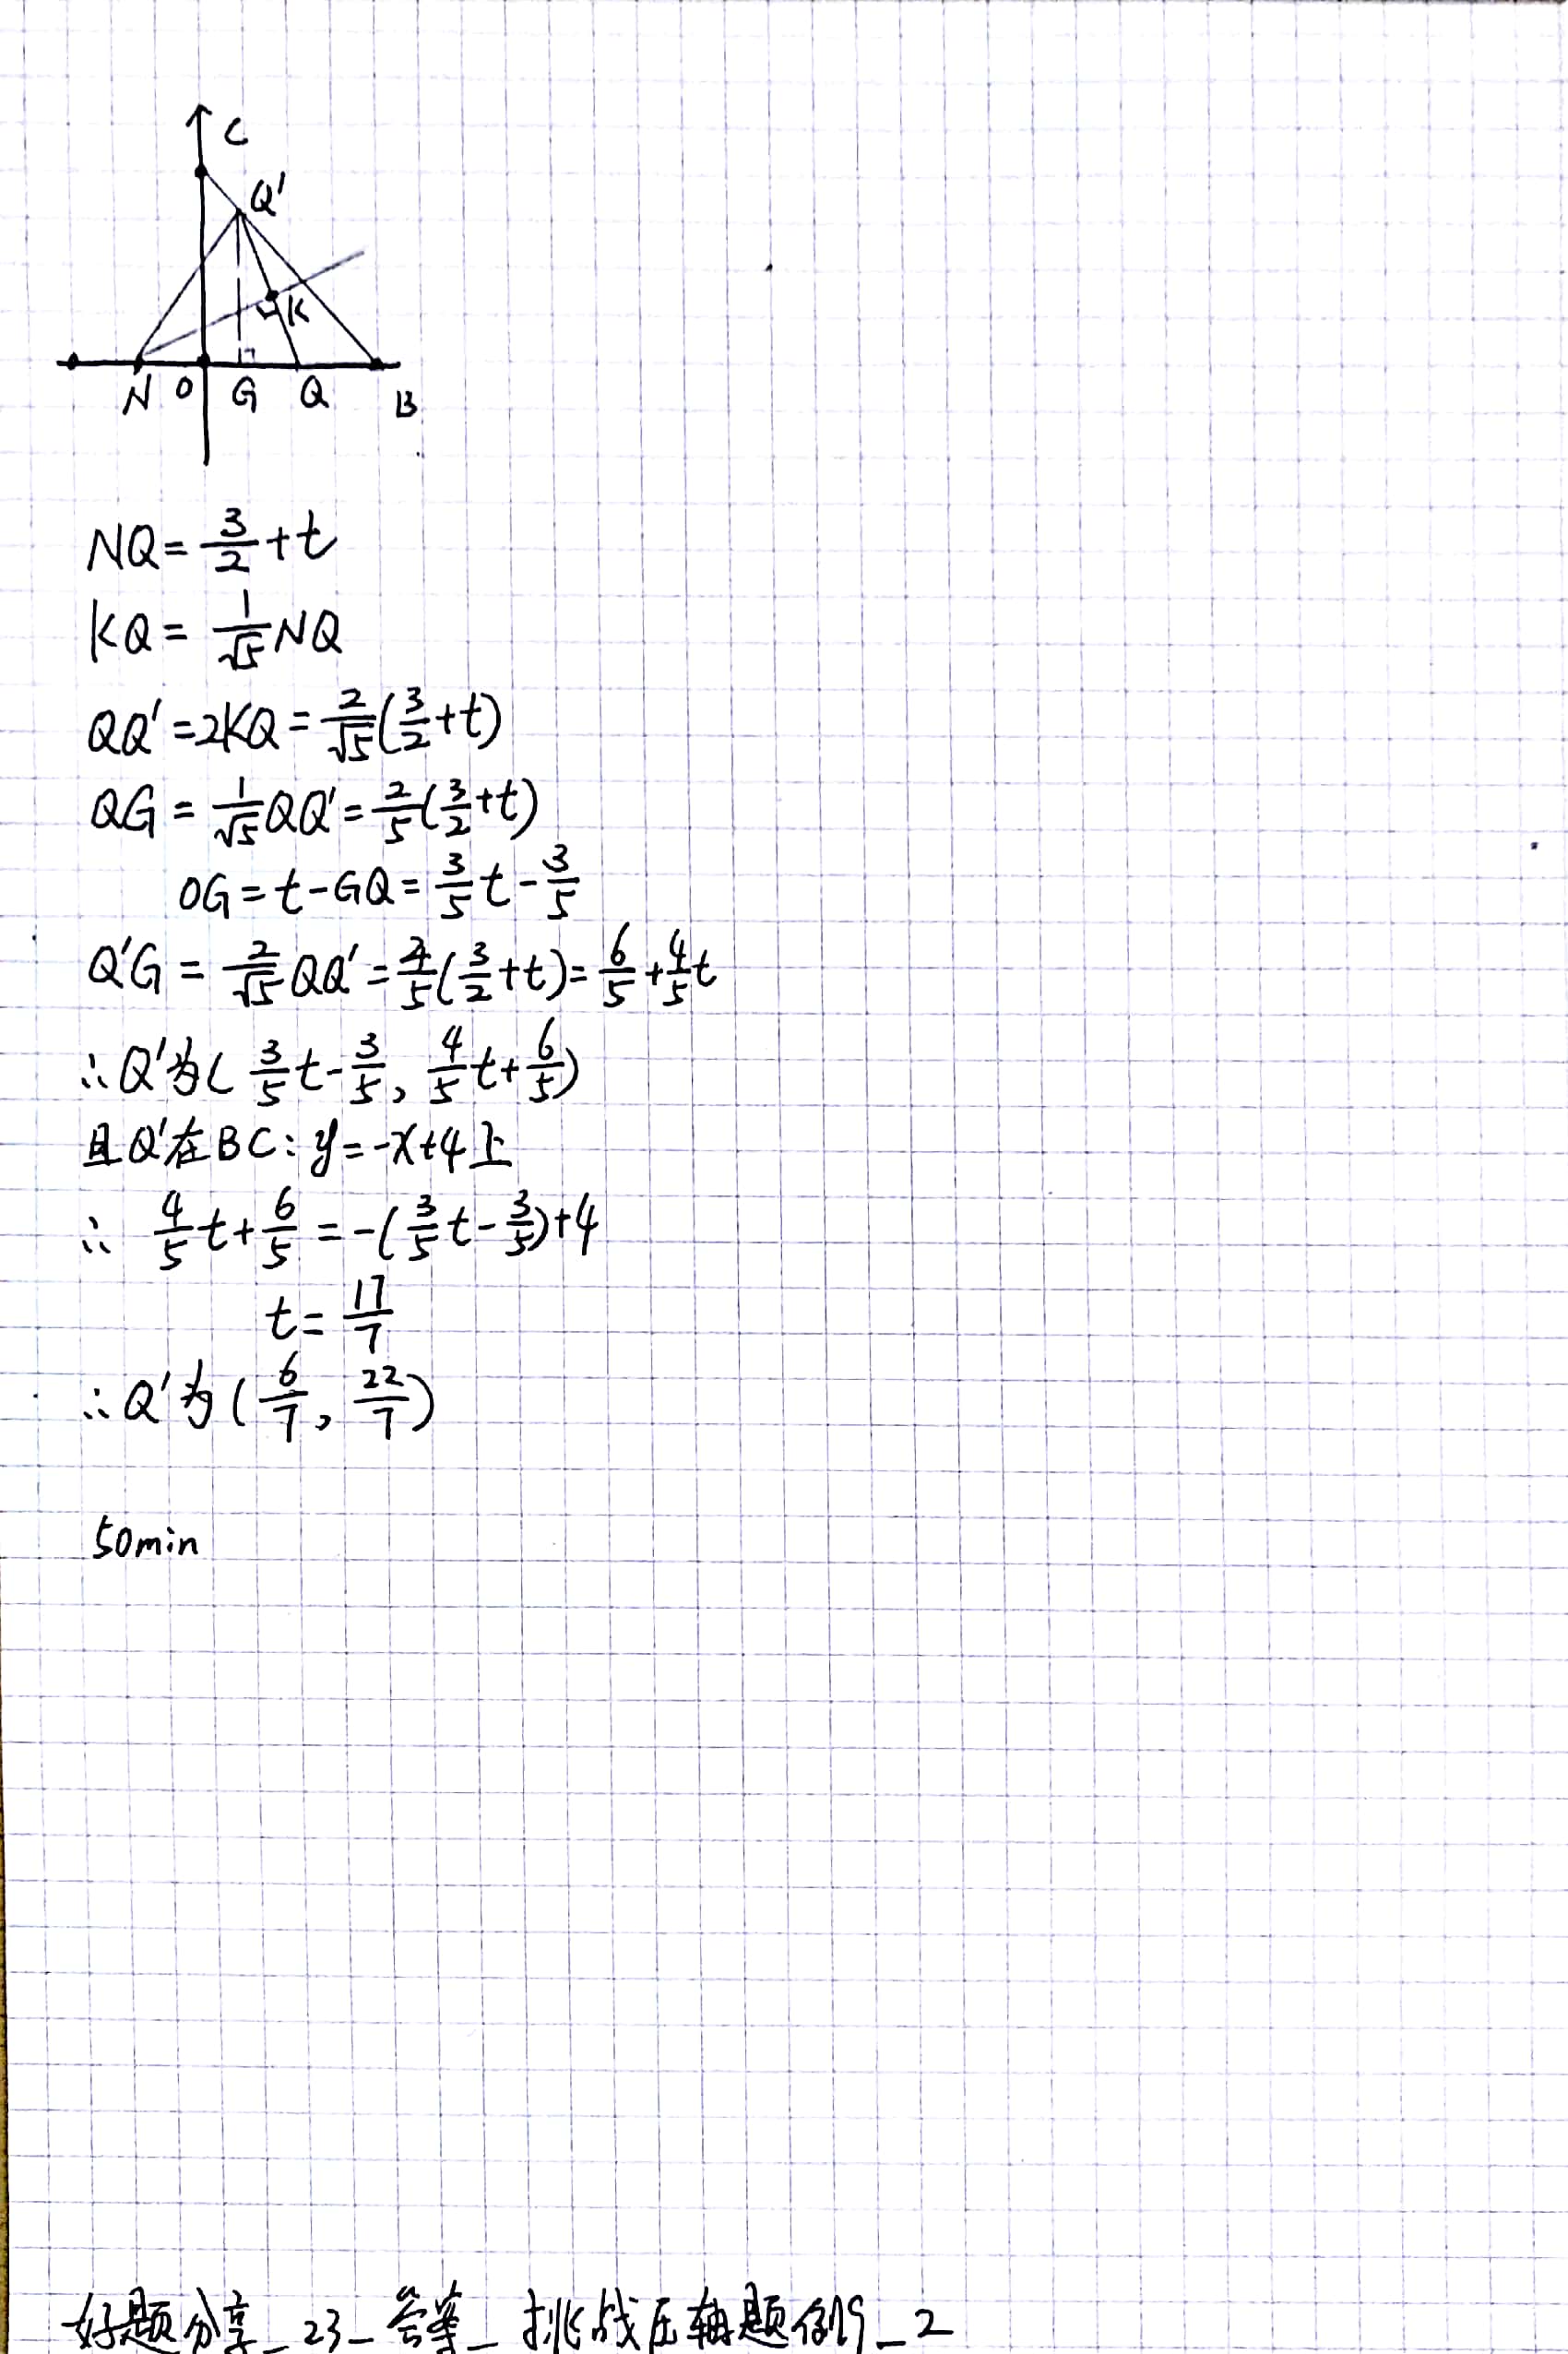 C
Q'
K
N O G Q B
NQ=3/2+t
KQ=1/√5NQ
QQ'=2KQ=2/√5(3/2+t)
QG=1/√5QQ'=2/5(3/2+t)
OG=t-GQ=3/5t-3/5
Q'G=2/√5QQ'=4/5(3/2+t)=6/5+4/5t
∴Q'为(3/5t-3/5,4/5t+6/5)
且Q'在BC:y=-x+4上
∴4/5t+6/5=-(3/5t-3/5)+4
t=17/7
∴Q'为(6/7,22/7)
50min
好题分享_23_答等_挑战压轴题例9_2